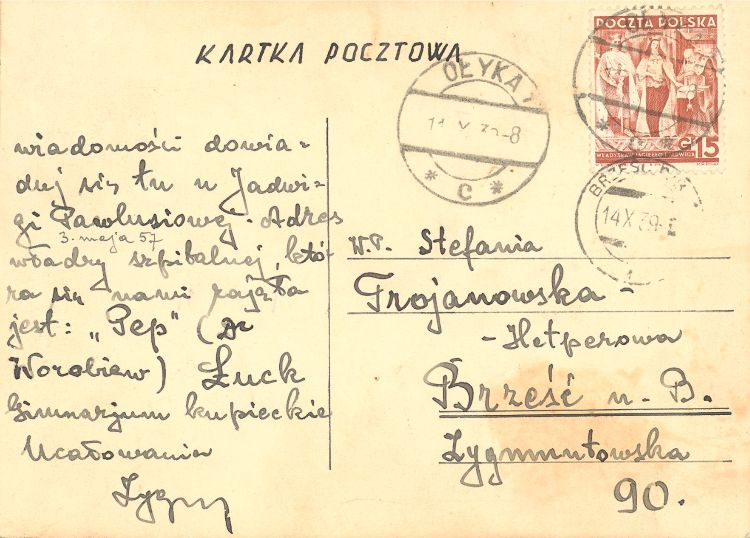 KARTKA POCZTOWA
POCZTA POLSKA
G 15
WŁADYSŁAW JAGIEŁŁO I JADWIGA
OŁYKA
11 X 39-8
* C *
14 X 39
wiadomości dowia-
duj się tu u Jadwi-
gi Pawlusiowej. Adres
3. maja 57
władzy szpitalnej, któ-
ra się nami zajęła
jest: „Pep" (Dr
Worobiew) Łuck
Gimnazjum kupieckie
Ucałowania
W.P. Stefania
Trojanowska -
- Hetperowa
Brześć n. B.
Zygmuntowska
90.